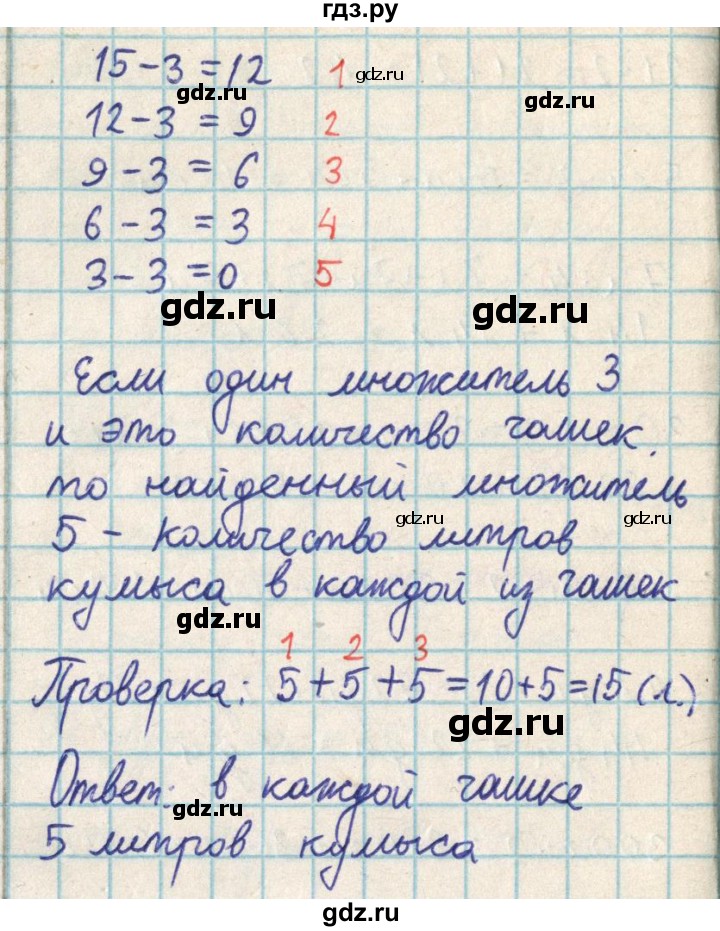 гдз.ру
15-3=12 1
gdz.ru
gdz.ru
gdz.ru
12-3=9 2
9-3=6 3
6-3=3 4
3-3=0 5
gdz.ru
gdz.ru
Если один множитель 3
и это количество чашек,
то найденный множитель
gdz.ru
gdz.ru
5 – количество литров
кумыса в каждой из чашек
gdz.ru
1 2 3
Проверка: 5+5+5=10+5=15 (л.)
gdz.ru
Ответ: в каждой чашке
gdz.ru
5 литров кумыса
gdz.ru